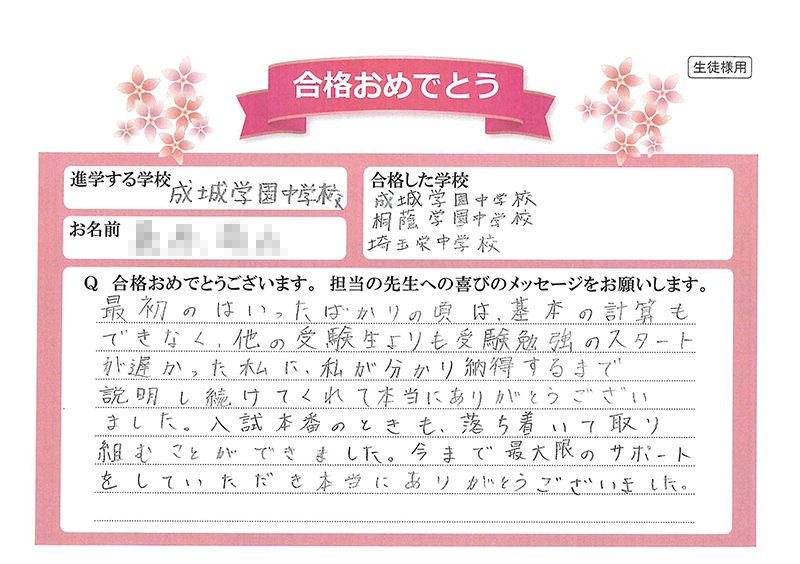 合格おめでとう
生徒様用
進学する学校
成城学園中学校
お名前
合格した学校
成城学園中学校
桐蔭学園中学校
埼玉栄中学校
Q 合格おめでとうございます。担当の先生への喜びのメッセージをお願いします。
最初のはいったばかりの頃は、基本の計算も
できなく、他の受験生よりも受験勉強のスタート
が遅かった私に、私が分かり納得するまで
説明し続けてくれて本当にありがとうござい
ました。入試本番のときも、落ち着いて取り
組むことができました。今まで最大限のサポート
をしていただき本当にありがとうございました。